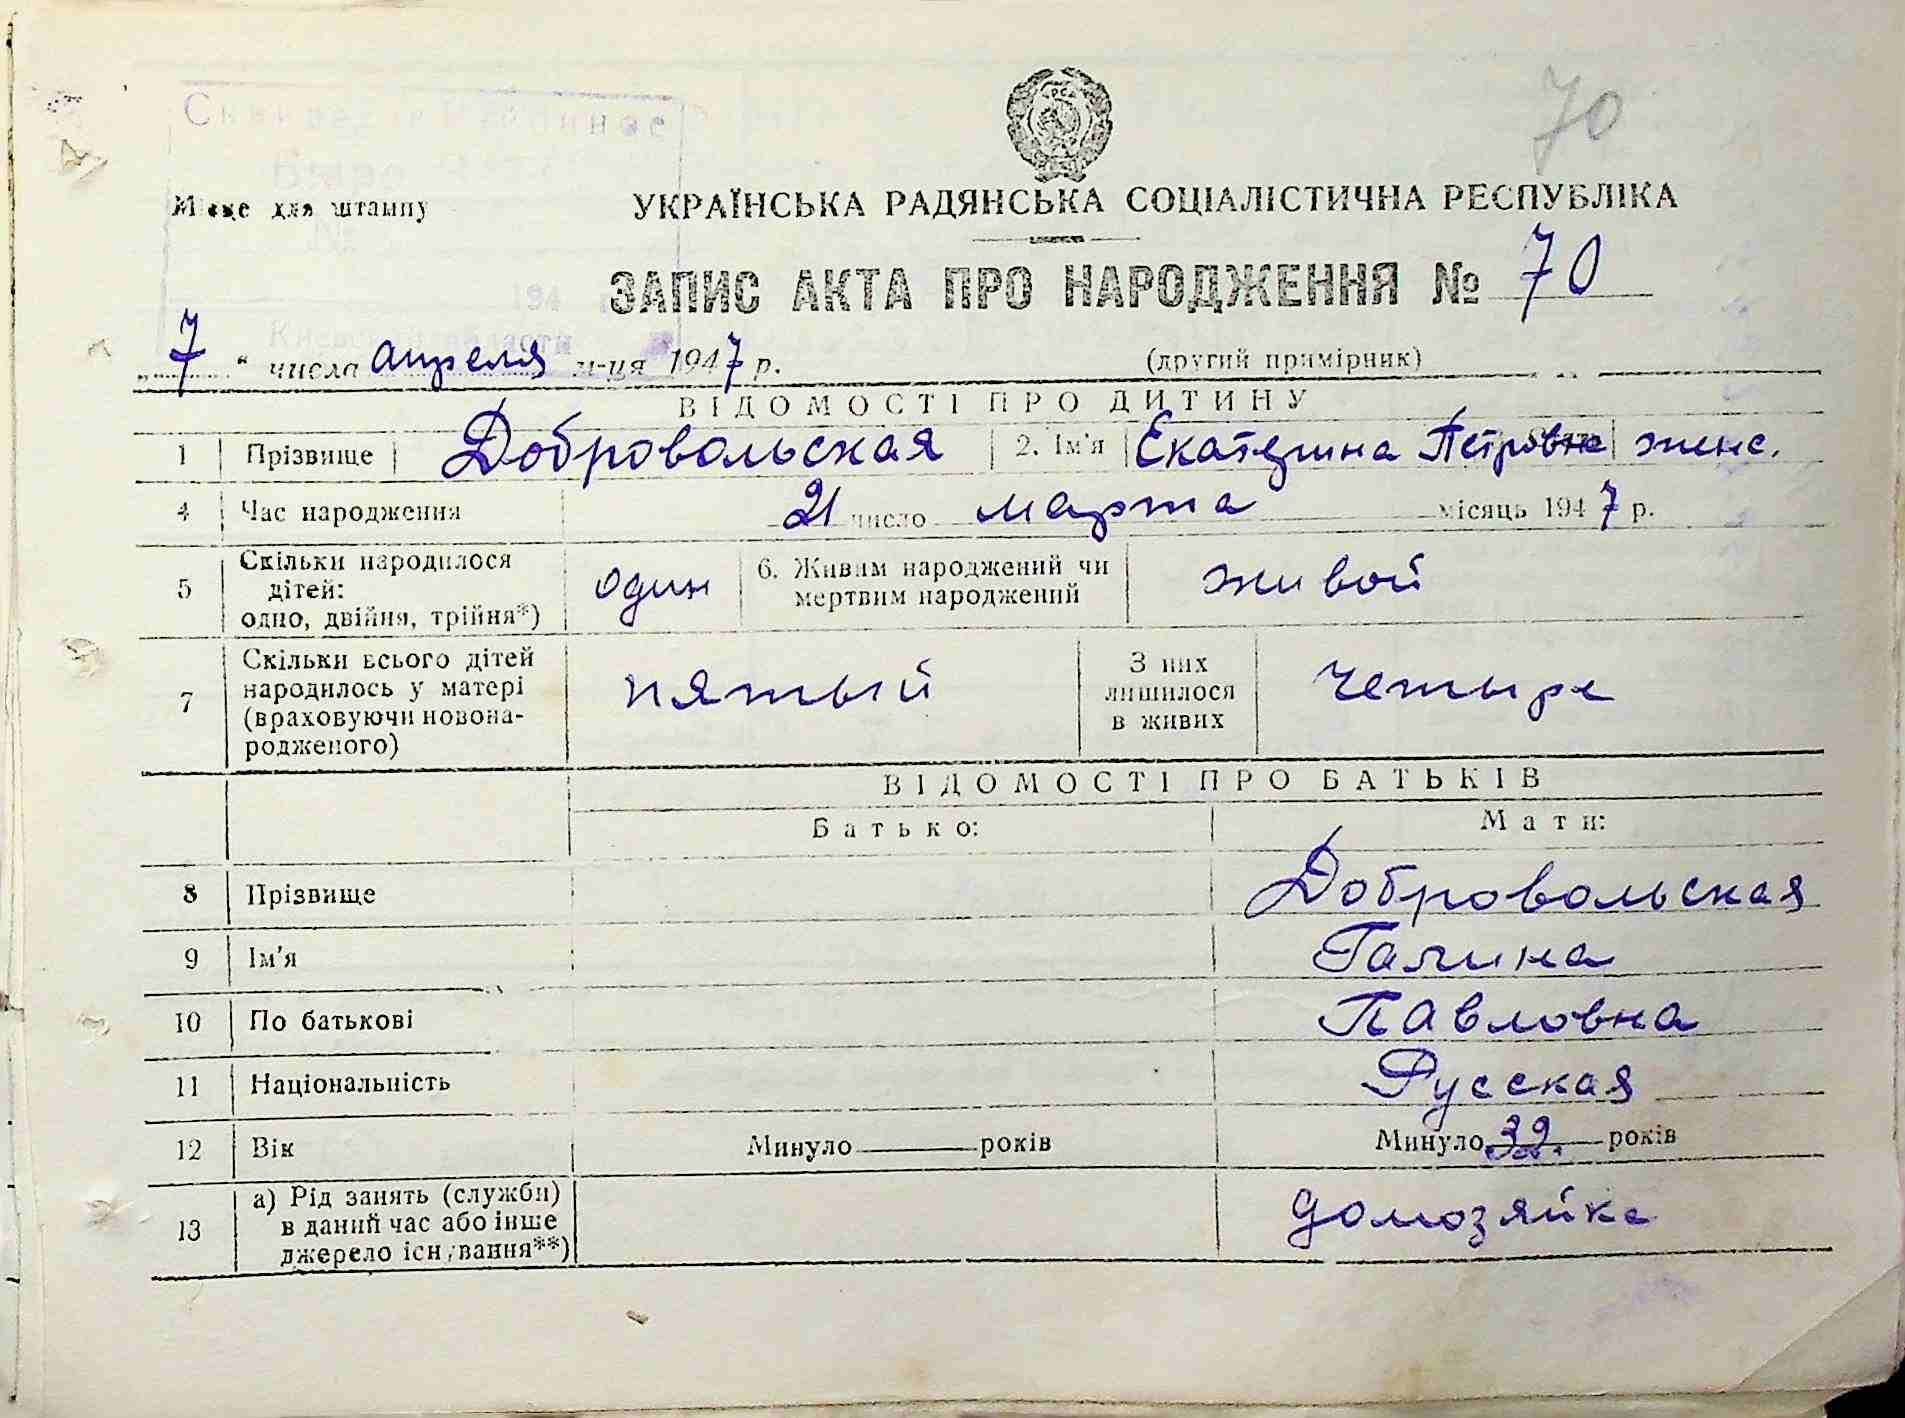 70
Місце для штампу
УКРАЇНСЬКА РАДЯНСЬКА СОЦІАЛІСТИЧНА РЕСПУБЛІКА
ЗАПИС АКТА ПРО НАРОДЖЕННЯ № 70
194
Киевской области
„ 7 “ числа апреля м-ця 1947 р. (другий примірник)
ВІДОМОСТІ ПРО ДИТИНУ
1 Прізвище Добровольская 2. Ім'я Екатерина Петровна женс.
4 Час народження 21 число марта місяць 1947 р.
5 Скільки народилося дітей: одно, двійня, трійня*) один 6. Живим народжений чи мертвим народжений живой
7 Скільки всього дітей народилось у матері (враховуючи новона-родженого) пятый З них лишилося в живих четыре
ВІДОМОСТІ ПРО БАТЬКІВ
Батько: Мати:
8 Прізвище Добровольская
9 Ім'я Галина
10 По батькові Павловна
11 Національність Русская
12 Вік Минуло років Минуло 39 років
13 а) Рід занять (служби) в даний час або інше джерело існування**) домозяйка